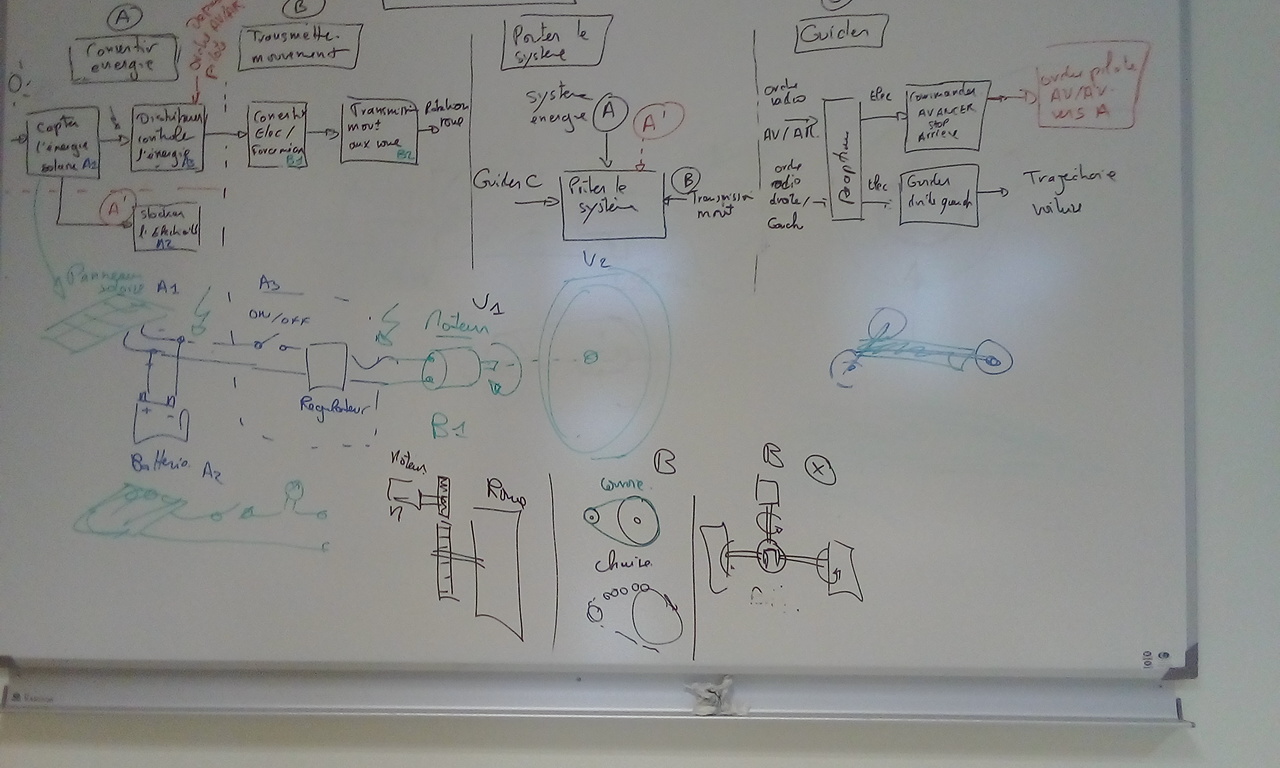 A
B
Convertir
énergie
Transmettre
mouvement
Porter le
système
Guider
ordre AV/AR
pilote
Capter
l'énergie
solaire A1
contrôle
l'énergie
A3
Convertir
Elec/
B1
Transmi
mouvt
aux roue
B2
Rotation
roue
A'
stocker
A2
système
énergie
A
A'
Guider C
Porter le
système
B
Transmission
mvt
ordre
radio
AV/AR
ordre
radio
droite/
Gauch
Elec
Elec
Commander
AVANCER
STOP
Arriere
Guider
ordre pilote
AV/AV
vers A
Trajectoire
voiture
Panneau
solaire
A1
A3
ON/OFF
V1
V2
Moteur
B1
Regulateur
+ -
Batterie
A2
Moteur
Roue
B
Chaine
B
X